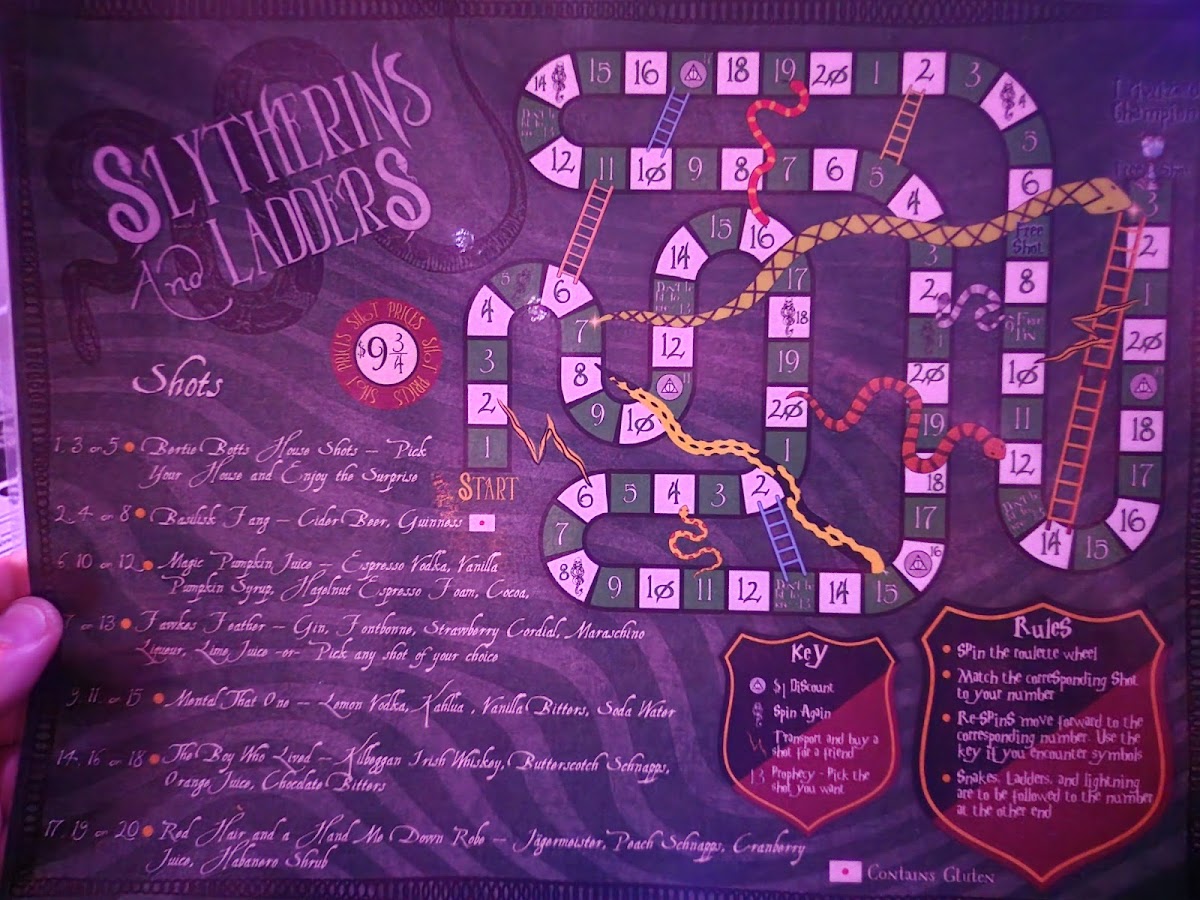 SLYTHERINS
And LADDERS
SHOT PRICES SHOT PRICES SHOT PRICES
$9 3/4
Shots
1, 3 or 5 • Bertie Botts House Shots – Pick
Your House and Enjoy the Surprise
2, 4 or 8 • Basilisk Fang – Cider Beer, Guinness
6, 10 or 12 • Magic Pumpkin Juice – Espresso Vodka, Vanilla
Pumpkin Syrup, Hazelnut Espresso Foam, Cocoa,
7 or 13 • Fawkes Feather – Gin, Fontbonne, Strawberry Cordial, Maraschino
Liqueur, Lime Juice -or- Pick any shot of your choice
9, 11 or 15 • Mental That One – Lemon Vodka, Kahlua, Vanilla Bitters, Soda Water
14, 16 or 18 • The Boy Who Lived – Kilbeggan Irish Whiskey, Butterscotch Schnapps,
Orange Juice, Chocolate Bitters
17, 19 or 20 • Red Hair and a Hand Me Down Robe – Jägermeister, Peach Schnapps, Cranberry
Juice, Habanero Shrub
14 15 16 18 19 20 1 2 3 4
5
12 11 10 9 8 7 6 5 4
6
3
Free Shot
2
8
1
20
10
19
11
18
12
17
16
14 15 16
17
18
1
20
2
3
15 14 12 11 10 9 8
7
6 5 4 3 2
1
20
19
18
17
16 15 14
12
10 9 8
7
6
5
4
3
2
1
START
Key
$1 Discount
Spin Again
Transport and buy a
shot for a friend
13 Prophecy - Pick the
shot you want
Rules
• Spin the roulette wheel
• Match the corresponding shot
to your number
• Re-spins move forward to the
corresponding number. Use the
key if you encounter symbols
• Snakes, Ladders, and lightning
are to be followed to the number
at the other end
Contains Gluten